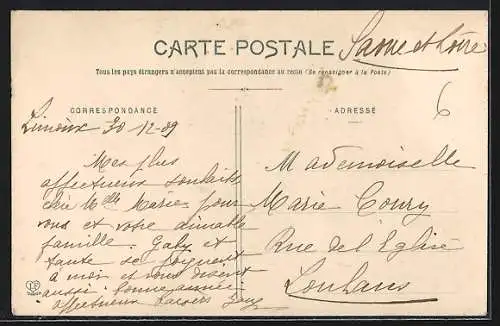 CARTE POSTALE
Saone et Loire
Tous les pays étrangers n'acceptent pas la correspondance au recto (Se renseigner à la Poste)
CORRESPONDANCE
ADRESSE
6
Limoux 30-12-09
Mes plus
affectueux souhaits
chère Mlle Marie pour
vous et votre aimable
famille. Gaby et
tante se joignent
à moi et vous disent
aussi: bonne année.
affectueux baisers
Mademoiselle
Marie Coury
Rue de l'Eglise
Louhans